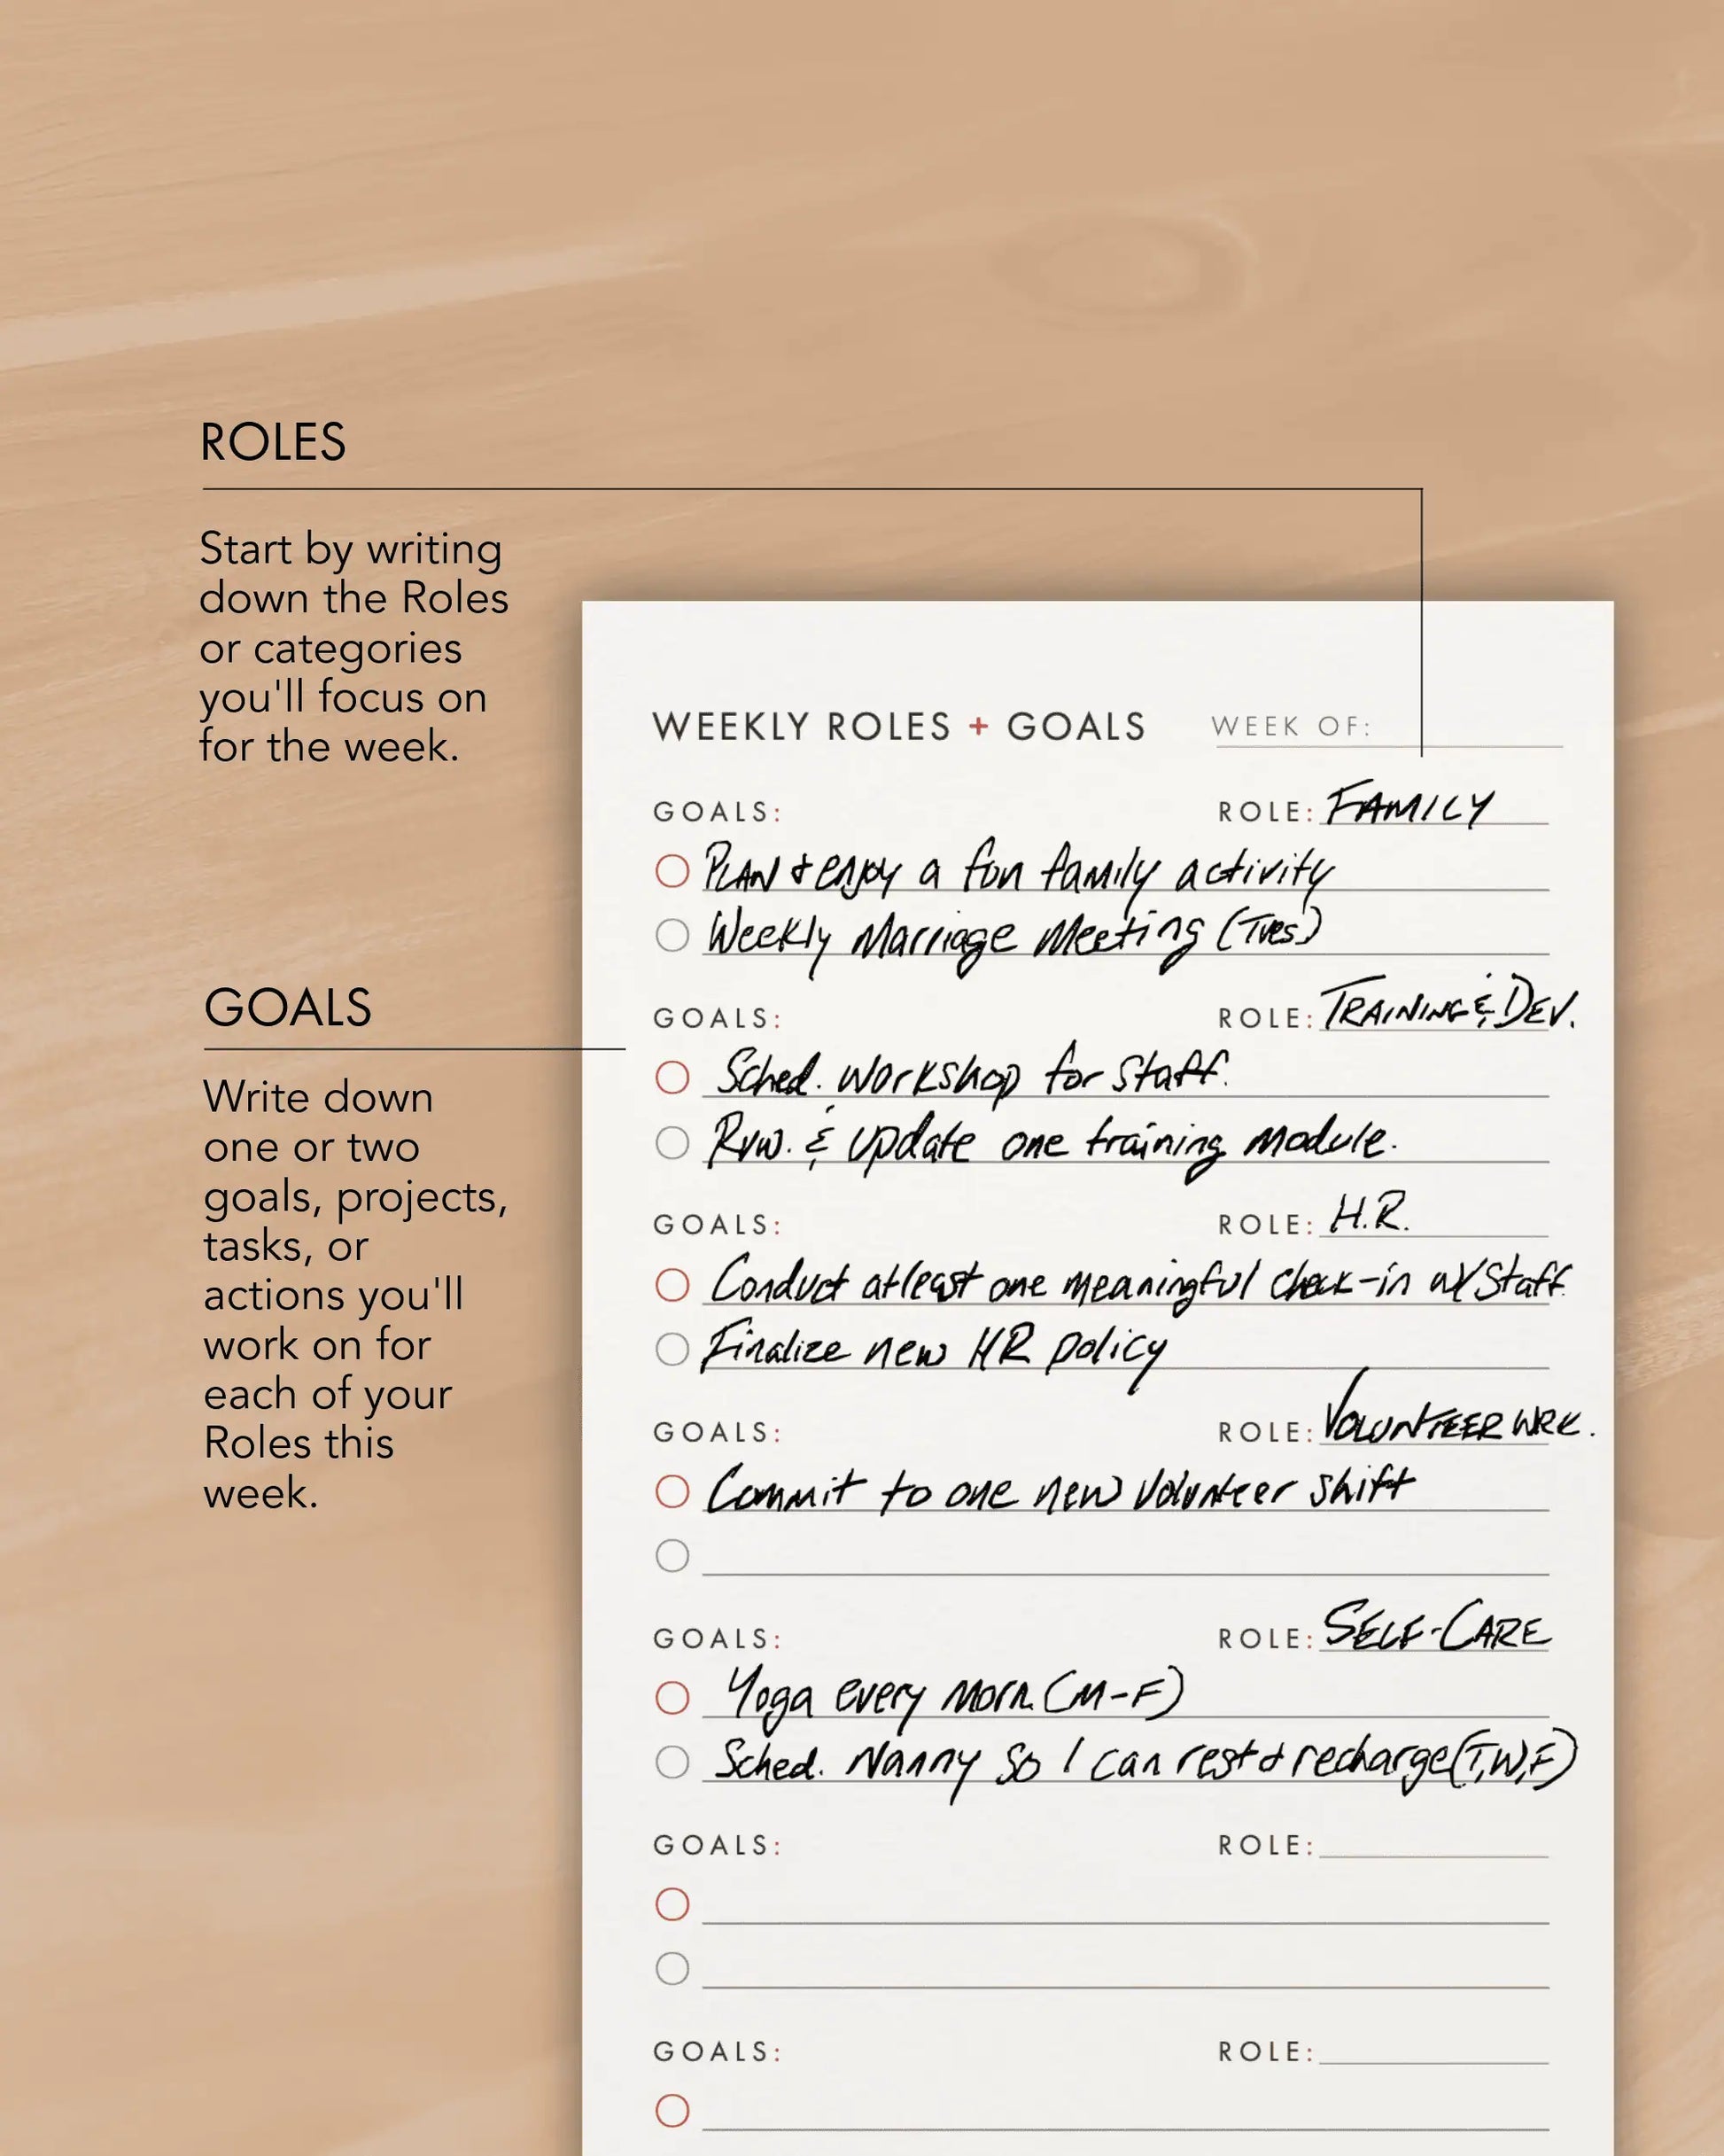 ROLES
Start by writing
down the Roles
or categories
you'll focus on
for the week.
GOALS
Write down
one or two
goals, projects,
tasks, or
actions you'll
work on for
each of your
Roles this
week.
WEEKLY ROLES + GOALS WEEK OF:
GOALS: ROLE: FAMILY
PLAN & enjoy a fun family activity
Weekly Marriage Meeting (Tues)
GOALS: ROLE: TRAINING & DEV.
Sched. workshop for staff.
Rvw. & update one training module.
GOALS: ROLE: H.R.
Conduct atleast one meaningful check-in w/ Staff.
Finalize new HR policy
GOALS: ROLE: VOLUNTEER WRK.
Commit to one new volunteer shift
GOALS: ROLE: SELF-CARE
Yoga every morn. (M-F)
Sched. Nanny so I can rest & recharge (T,W,F)
GOALS: ROLE:
GOALS: ROLE: